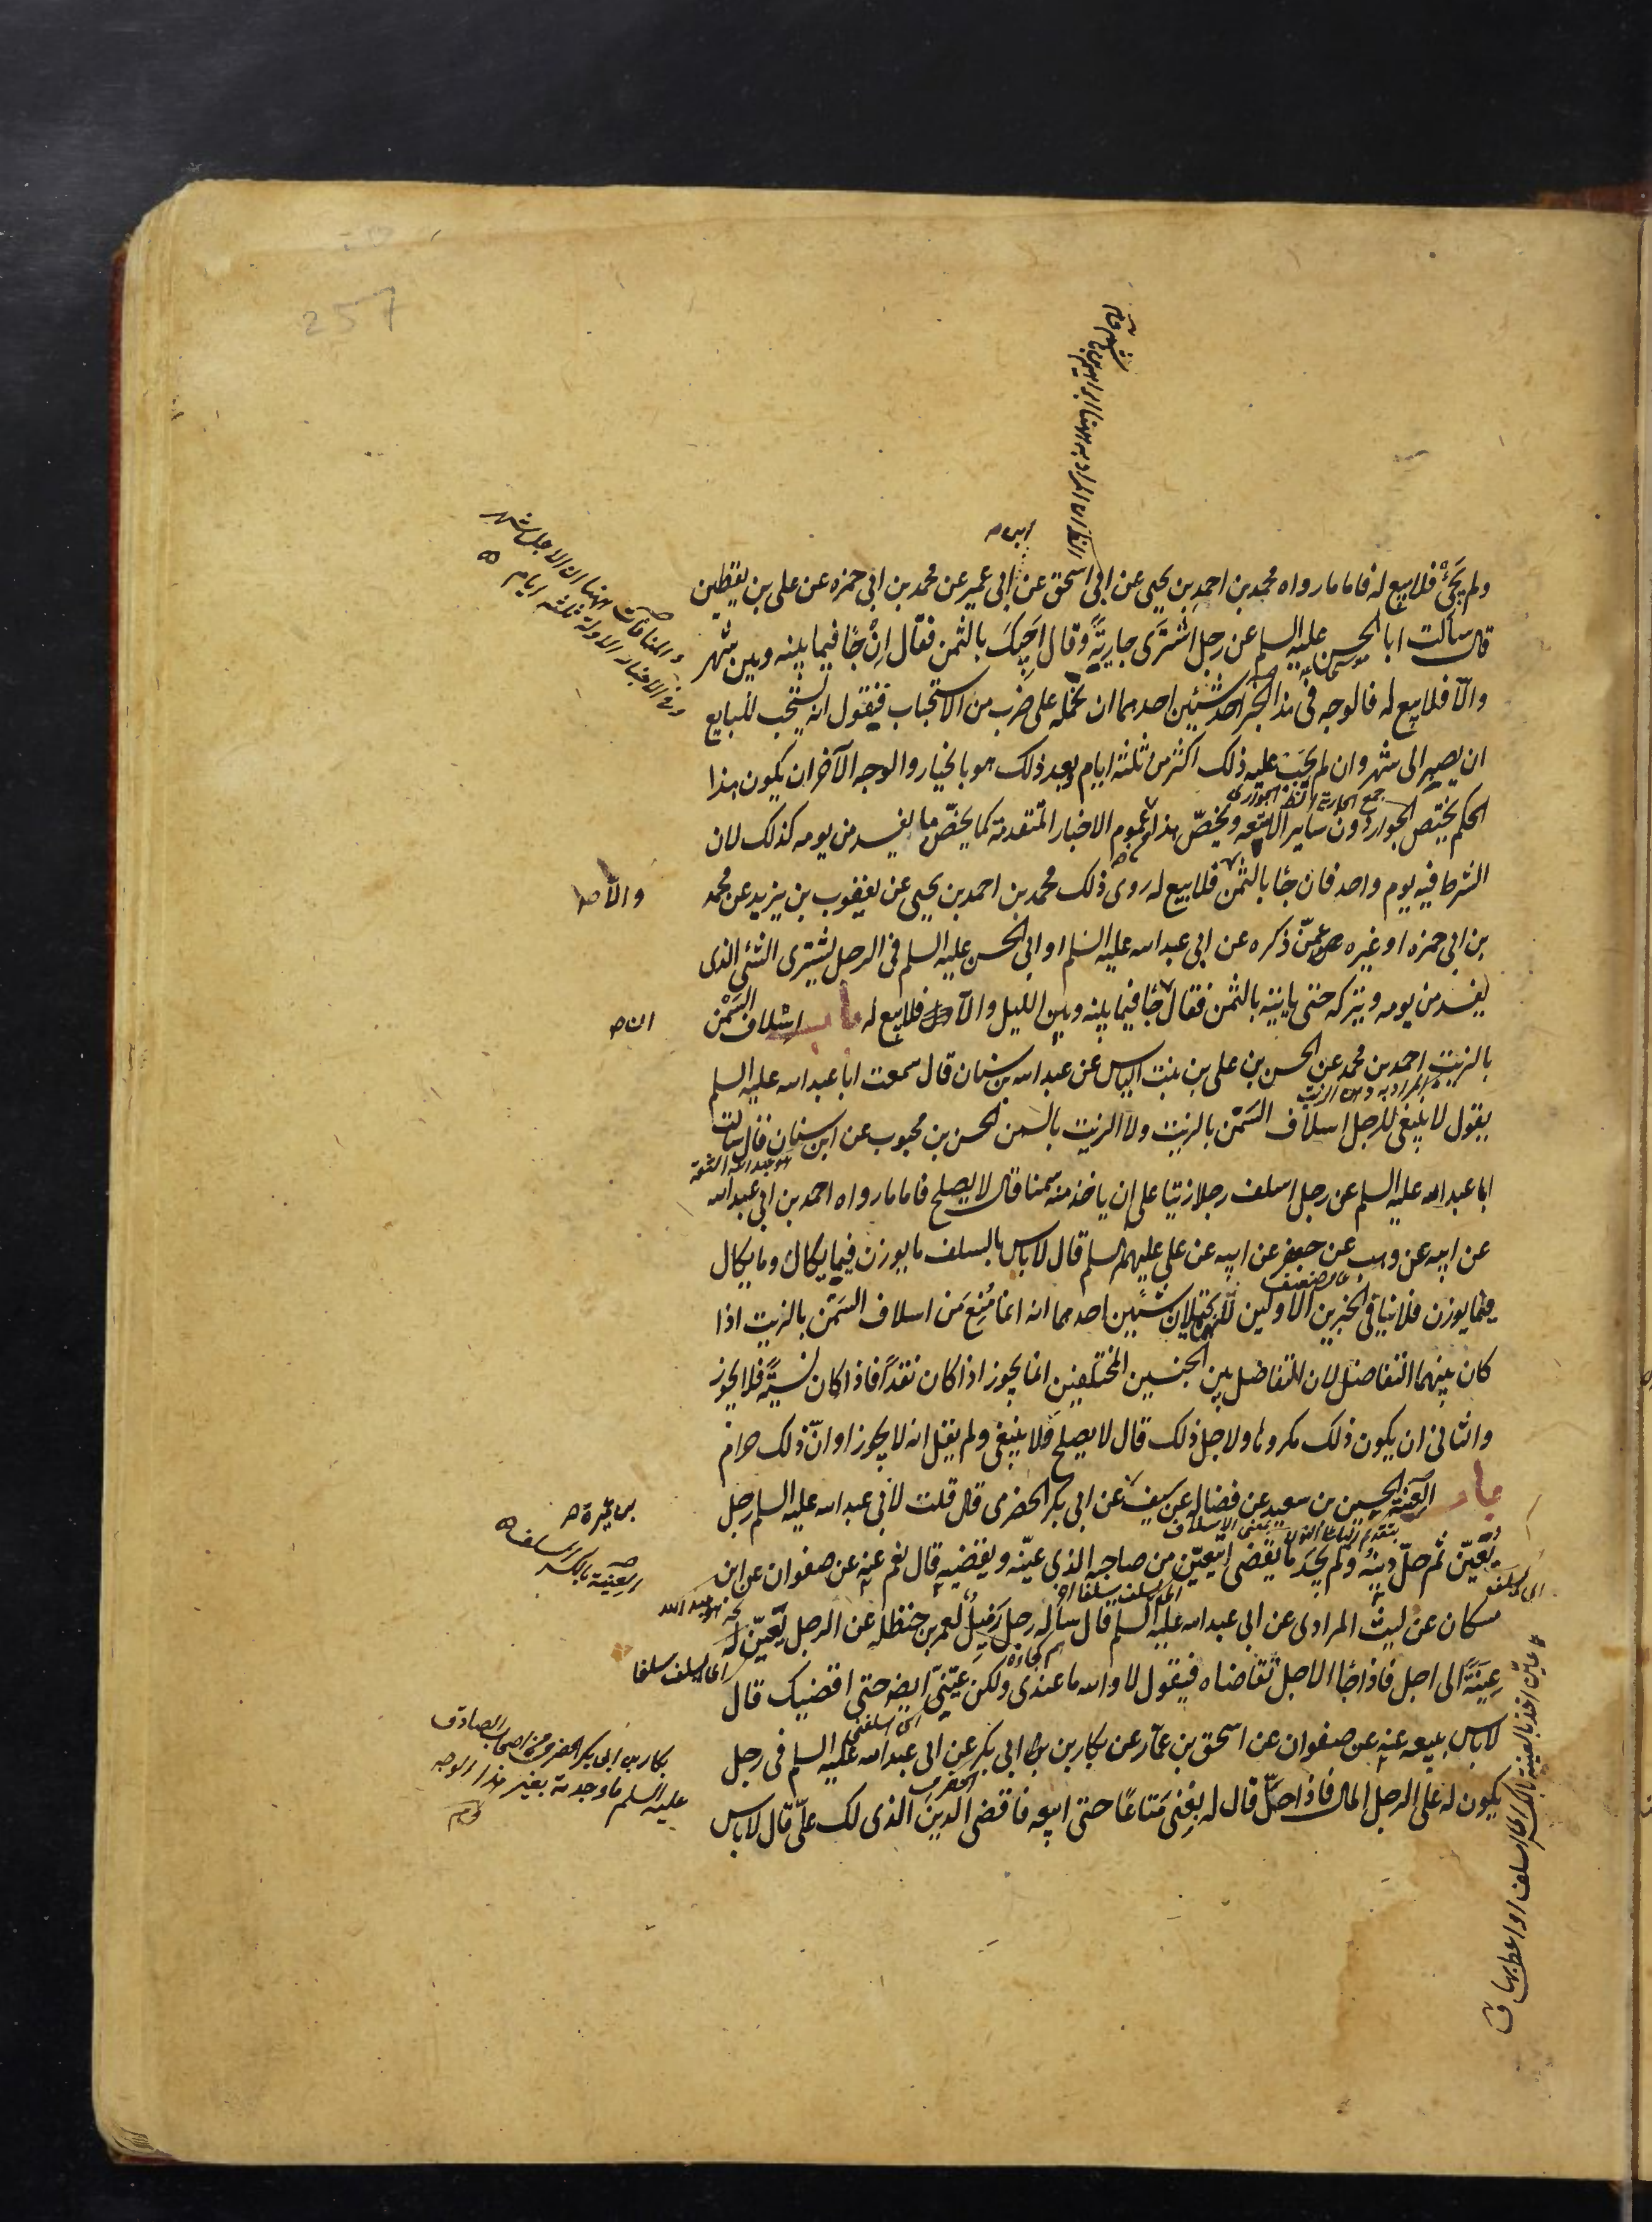 257
ولم يجئ فلا بيع له فاما ما رواه محمد بن احمد بن يحيى عن ابى اسحق عن ابى عمير عن محمد بن ابى حمزه عن على بن يقطين
قال سألت ابا الحسن عليه السلم عن رجل اشترى جارية وقال اجيئك بالثمن فقال ان جا فيما بينه وبين شهر
والا فلا بيع له فالوجه فى هذا الخبر احد شيئين احدهما ان نحمله على ضرب من الاستحباب فيقول انه يستحب للبايع
ان يصير الى شهر وان لم يجب عليه ذلك اكثر من ثلثة ايام وبعد ذلك هو بالخيار والوجه الآخر ان يكون هذا
الحكم يختص الجوار دون ساير الامتعه ويخص بهذا عموم الاخبار المتقدمة كما يخص ما يفسد من يومه كذلك لان
الشرط فيه يوم واحد فان جا بالثمن فلا بيع له روى ذلك محمد بن احمد بن يحيى عن يعقوب بن يزيد عن محمد
والا صد
بن ابى حمزه او غيره عمن ذكره عن ابى عبد الله عليه السلم او ابى الحسن عليه السلم فى الرجل يشترى الشئ الذى
يفسد من يومه ويتركه حتى ياتيه بالثمن فقال جا فيما بينه وبين الليل والا فلا بيع له باب اسلاف السمن
ان ص
بالزيت احمد بن محمد عن الحسن بن على بن بنت الياس عن عبد الله بن سنان قال سمعت ابا عبد الله عليه السلم
يقول لا ينبغى للرجل اسلاف السمن بالزيت ولا الزيت بالسمن الحسن بن محبوب عن ابن سنان قال سالت
هو عبد الله الثقة
ابا عبد الله عليه السلم عن رجل اسلف رجلا زيتا على ان ياخذ منه سمنا قال لا يصلح فاما ما رواه احمد بن ابى عبد الله
عن ابيه عن وهب عن جعفر عن ابيه عن على عليهم السلم قال لا باس بالسلف ما يوزن فيما يكال وما يكال
فيما يوزن فلا ينافى الخبرين الاولين لانهما يحتملان شيئين احدهما انه انما منع من اسلاف السمن بالزيت اذا
كان بينهما التفاضل لان التفاضل بين الجنسين المختلفين انما يجوز اذا كان نقدا فاذا كان نسية فلا يجوز
والثانى ان يكون ذلك مكروها ولاجل ذلك قال لا يصلح ولا ينبغى ولم يقل انه لا يجوز او ان ذلك حرام
باب العينة الحسين بن سعيد عن فضاله عن سيف عن ابى بكر الحضرمى قال قلت لابى عبد الله عليه السلم رجل
بن عميرة ص
يعين ثم حل دينه ولم يجد ما يقضى ايتعين من صاحبه الذى عينه ويقضيه قال نعم عنه عن صفوان عن ابن
العينة بالكسر السلف
مسكان عن ليث المرادى عن ابى عبد الله عليه السلم قال ساله رجل زميل لعمر بن حنظله عن الرجل يعين
عينة الى اجل فاذا جا الاجل تقاضاه فيقول لا والله ما عندى ولكن عينى ايضا حتى اقضيك قال
لا باس ببيعه عنه عن صفوان عن اسحق بن عمار عن بكار بن ابى بكر عن ابى عبد الله عليه السلم فى رجل
الحضرمى
يكون له على الرجل المال فاذا حل قال له بعنى متاعا حتى ابيعه فاقضى الدين الذى لك على قال لا باس
بكار بن ابى بكر الحضرمى من اصحاب الصادق
عليه السلم ما وجدته بغير هذا الوجه